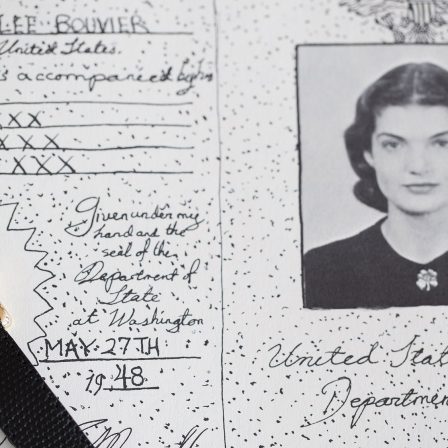 LEE BOUVIER
United States.
is accompanied by
XX
XXX
XXX
Given under my
hand and the
seal of the
Department of
State
at Washington
MAY 27TH
1948
United Stat
Departmen